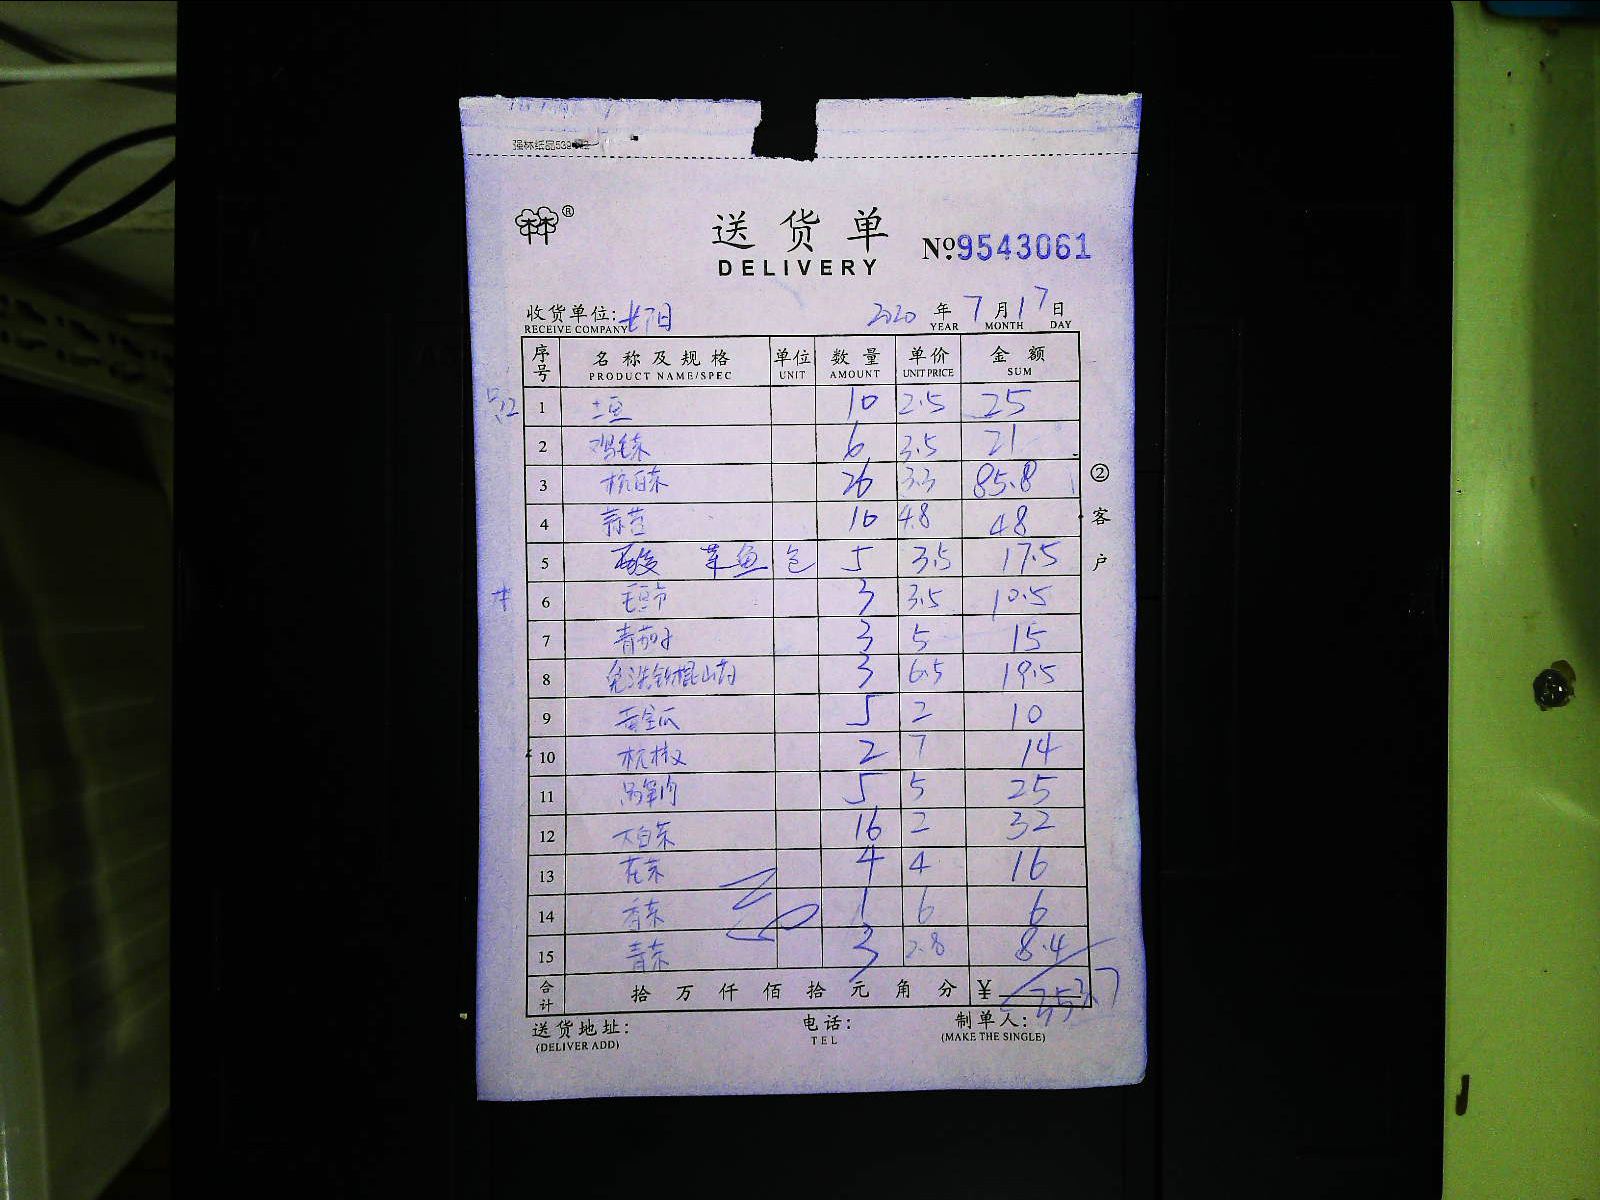 强林纸品539
®
送货单
DELIVERY
№9543061
收货单位:长阳 2020年7月17日
RECEIVE COMPANY YEAR MONTH DAY
序号 名称及规格 单位 数量 单价 金额
PRODUCT NAME/SPEC UNIT AMOUNT UNIT PRICE SUM
1 土豆 10 2.5 25
2 鸡毛菜 6 3.5 21
3 杭白菜 26 3.3 85.8
4 蒜苔 10 4.8 48
5 酸菜鱼 包 5 3.5 17.5
6 毛豆节 3 3.5 10.5
7 青茄子 3 5 15
8 免洗铁棍山药 3 6.5 19.5
9 黄金瓜 5 2 10
10 杭椒 2 7 14
11 5 5 25
12 大白菜 16 2 32
13 花菜 4 4 16
14 香菜 1 6 6
15 青菜 3 2.8 8.4
合计 拾万仟佰拾元角分 ¥ 353.7
②客户
送货地址: 电话: 制单人:
(DELIVER ADD) TEL (MAKE THE SINGLE)